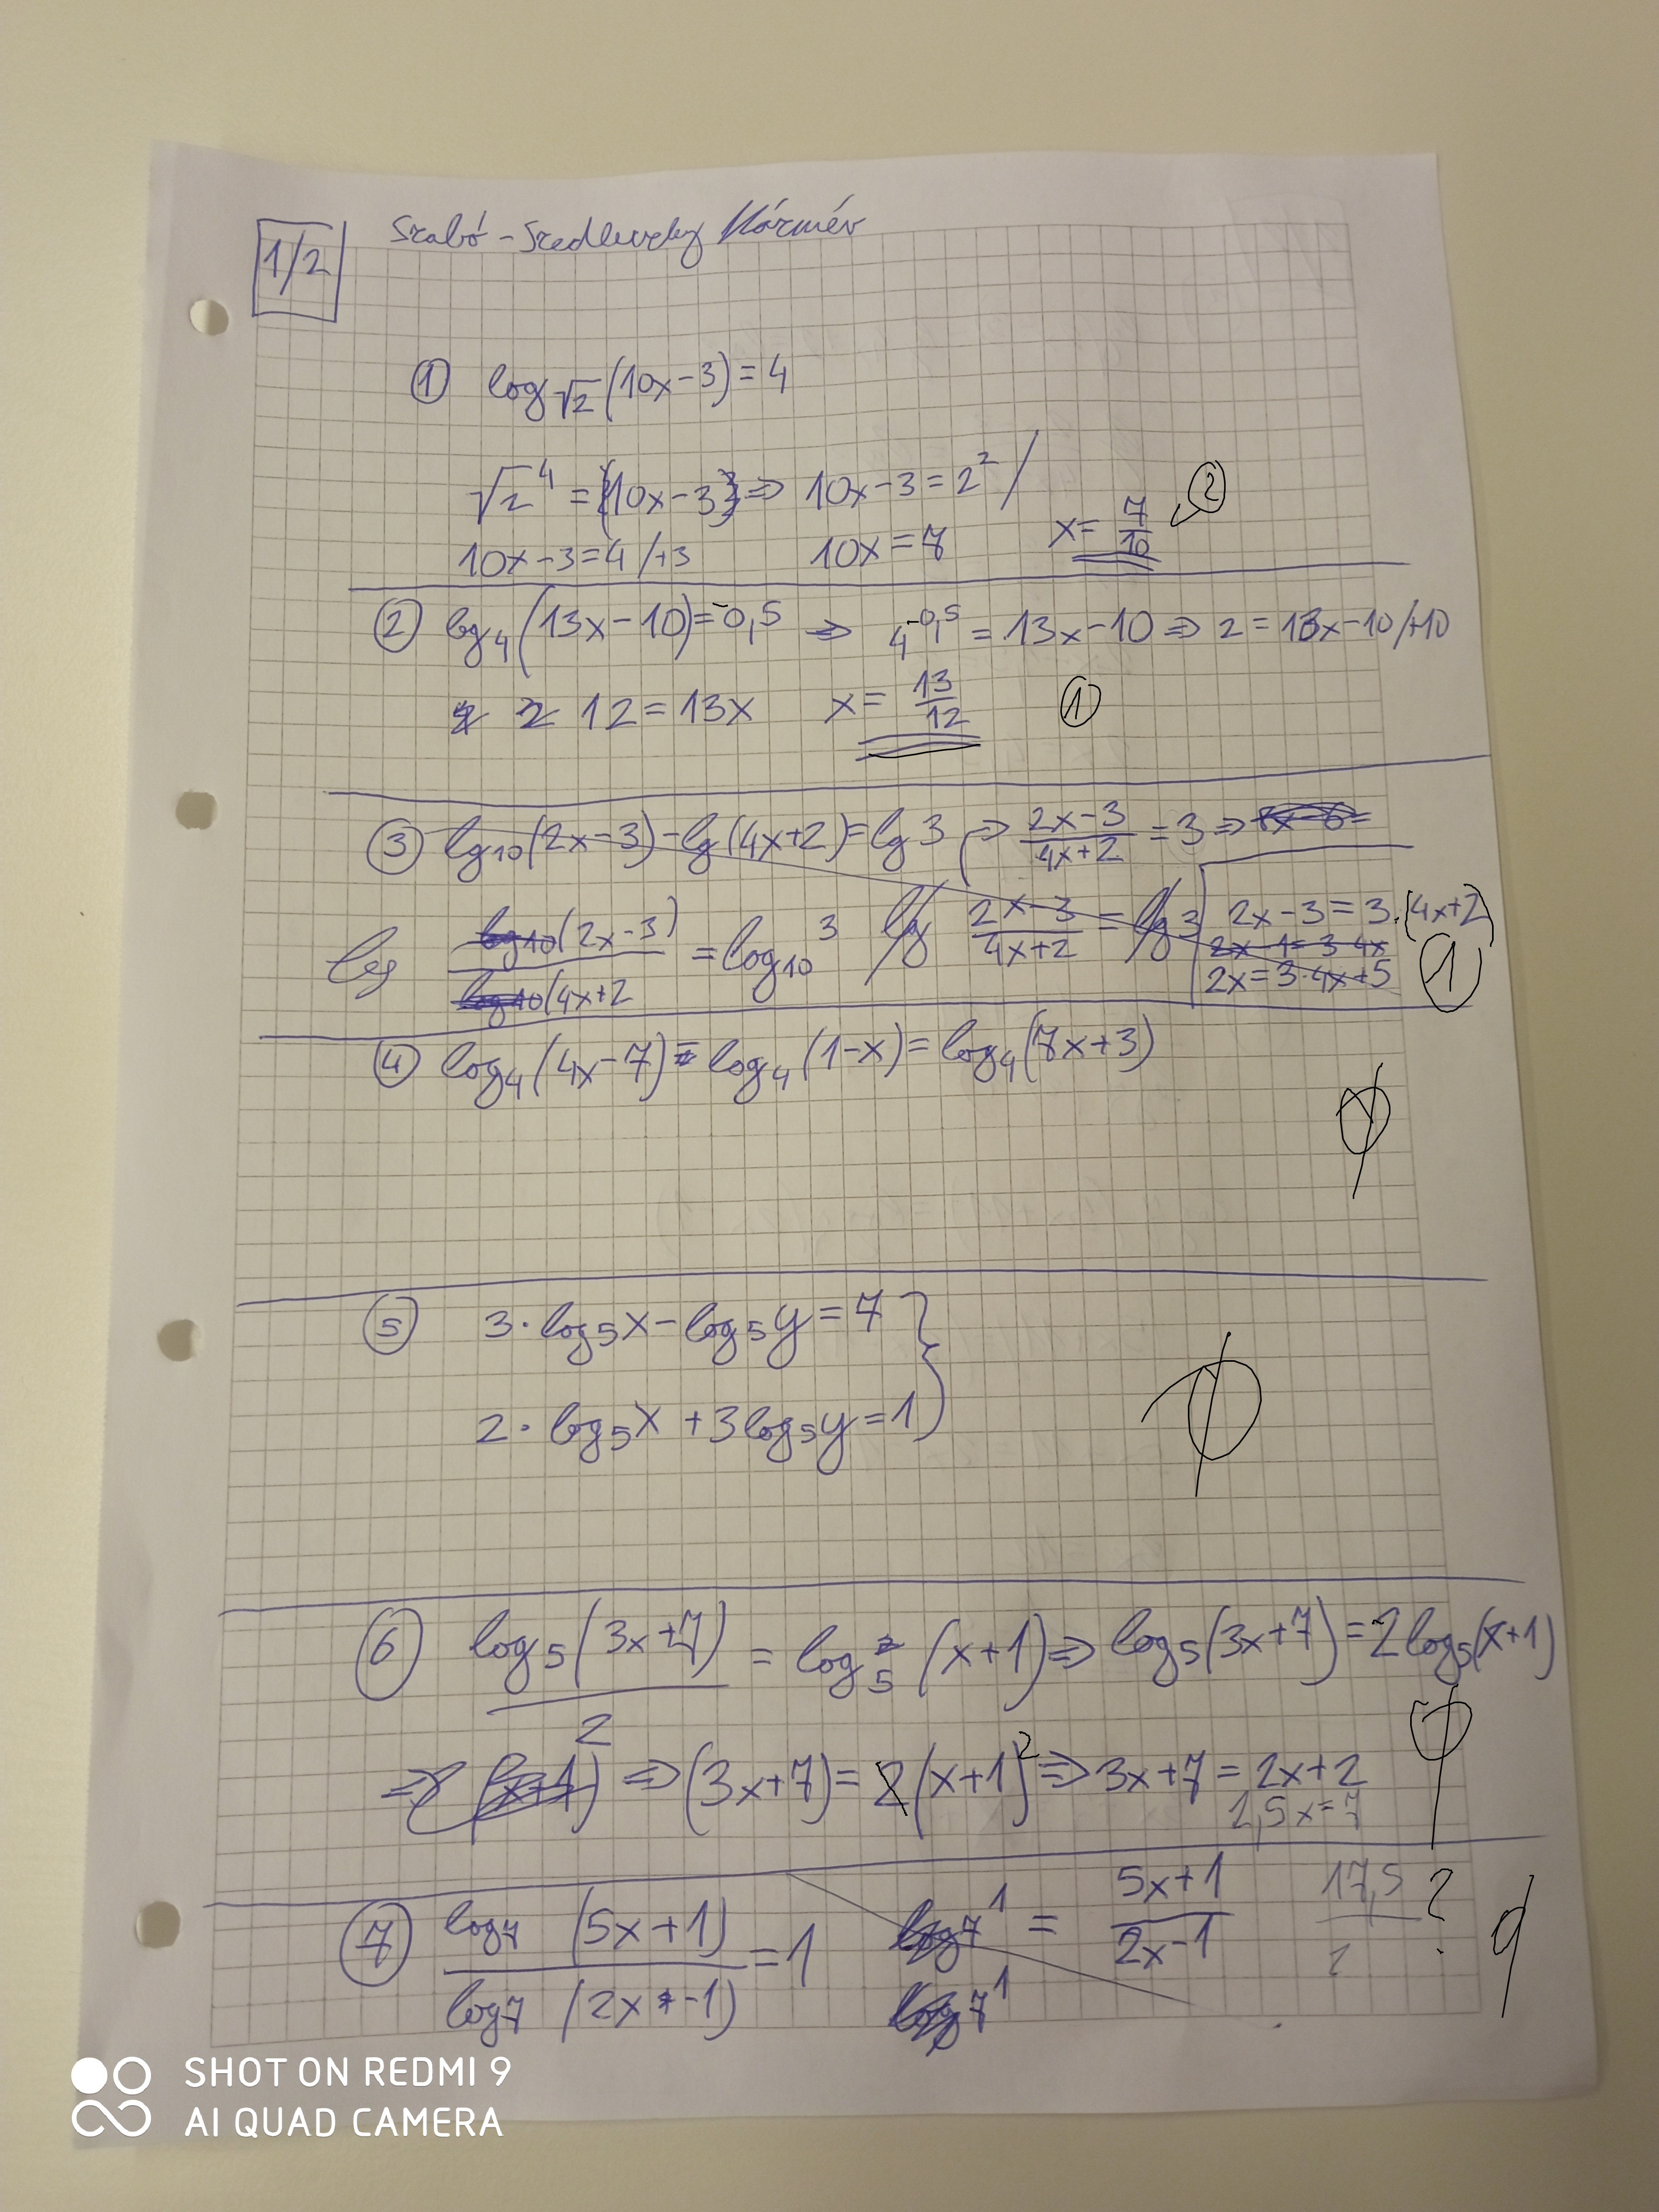 1/2
Szabó-Szedlevezky
① log√2 (10x-3) = 4
√2⁴ = (10x-3) ⇒ 10x-3 = 2² /
10x-3=4 /+3 10x=7 x= 7/10 ②
② log₄ (13x-10) = -0,5 ⇒ 4^-0,5 = 13x-10 ⇒ 2 = 13x-10 /+10
12 = 13x x= 13/12 ①
③ lg₁₀ (2x-3) - lg (4x+2) = lg 3 ⇒ (2x-3)/(4x+2) = 3 ⇒
log (2x-3)/(4x+2 = log₁₀ 3 lg (2x-3)/(4x+2) = lg 3 2x-3 = 3·(4x+2)
2x-1=3·4x
2x=3·4x+5 ①
④ log₄ (4x-7) = log₄ (1-x) = log₄ (7x+3)
⑤ 3·log₅x - log₅y = 7 }
2·log₅x + 3log₅y = 1
⑥ log₅ (3x+7)/2 = log₅ (x+1) ⇒ log₅(3x+7) = 2log₅(x+1)
⇒ (x+1) ⇒ (3x+7) = 2(x+1)² ⇒ 3x+7 = 2x+2
1,5x=7
⑦ log₇ (5x+1)/log₇ (2x-1) = 1 log7¹ = (5x+1)/(2x-1) 17,5 ?
log7¹
SHOT ON REDMI 9
AI QUAD CAMERA